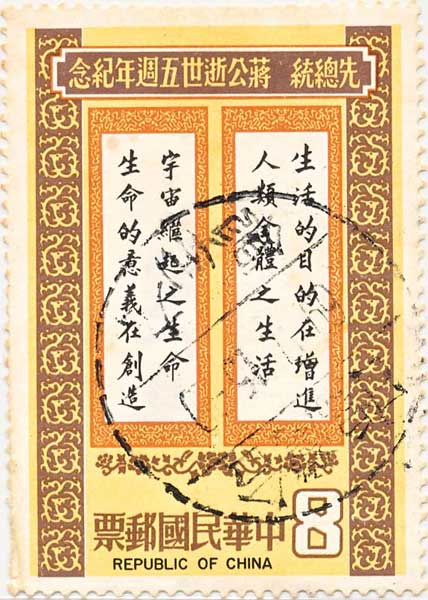 先總統 蔣公逝世五週年紀念
生活的目的在增進
人類全體之生活
生命的意義在創造
宇宙繼起之生命
8
中華民國郵票
REPUBLIC OF CHINA